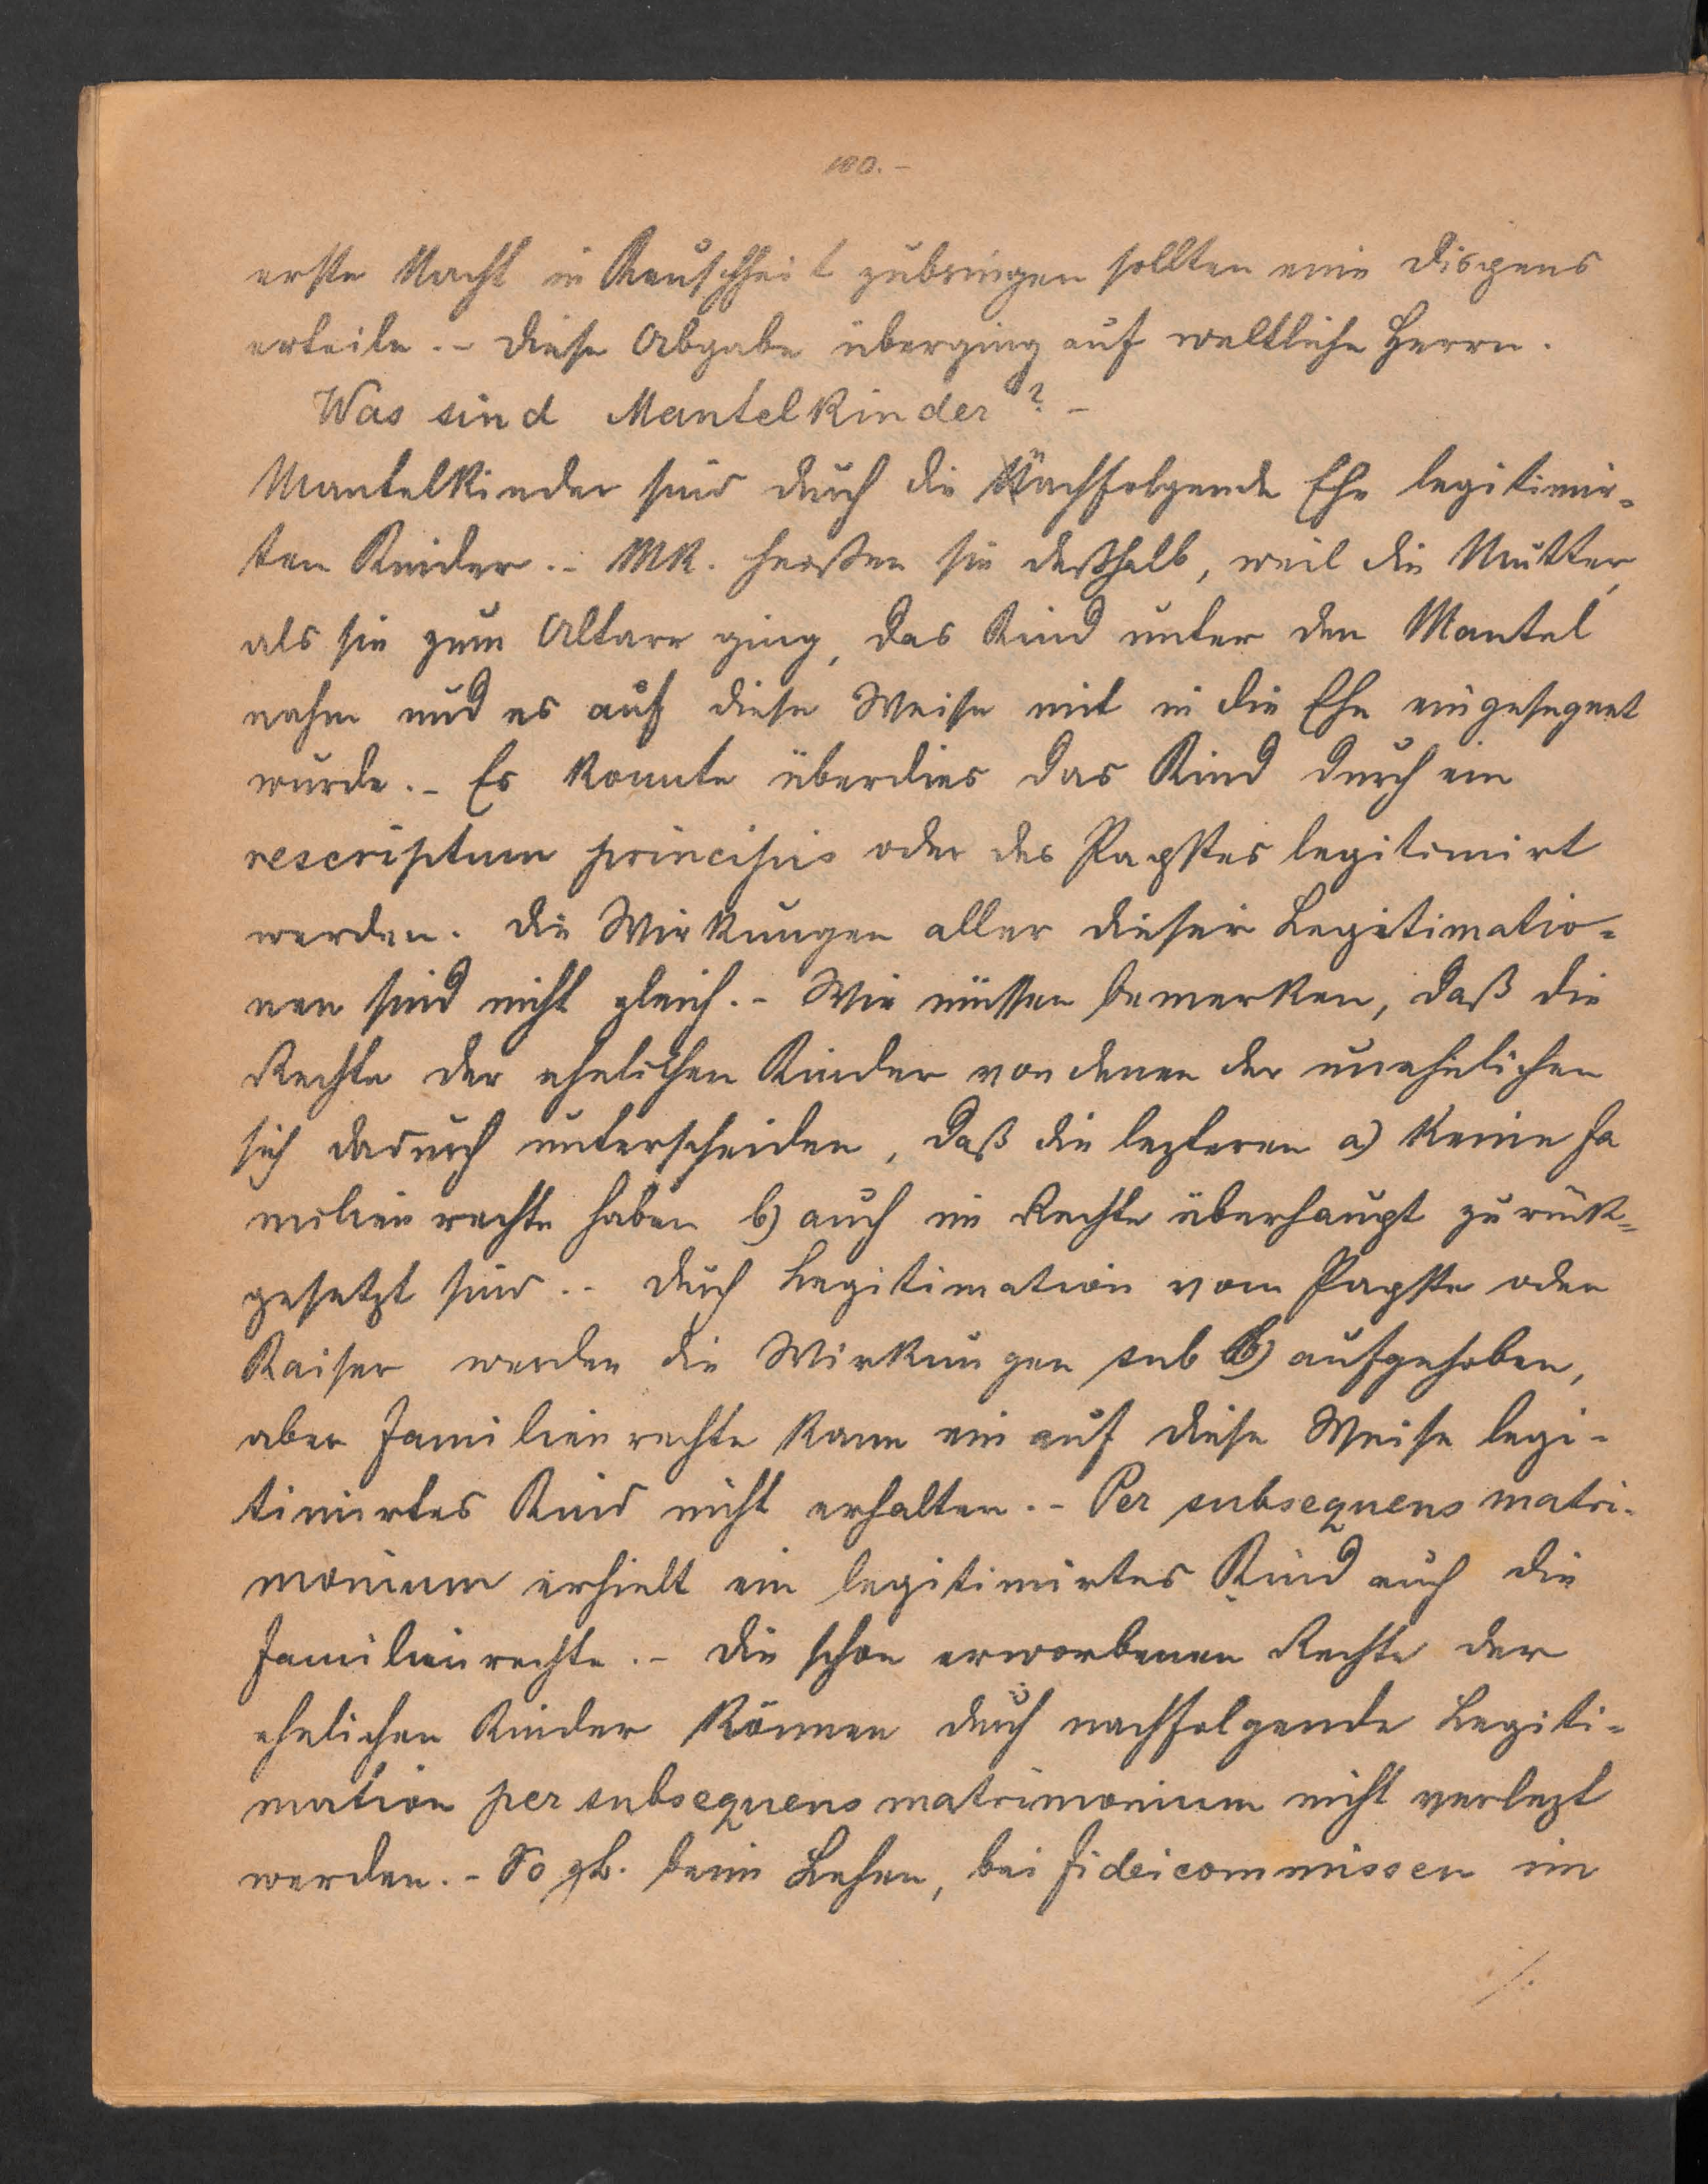 180.-
erste Nacht in Keuschheit zubringen sollten eine Dispens
erteile.- Diese Abgabe überging auf weltliche Herrn.
Was sind Mantelkinder? -
Mantelkinder sind durch die Nachfolgende Ehe legitimir-
ten Kinder.- MK. heißen sie deßhalb, weil die Mutter,
als sie zum Altare ging, das Kind unter den Mantel
nahm und es auf diese Weise mit in die Ehe eingesegnet
wurde.- Es konnte überdies das Kind durch ein
rescriptum principis oder des Papstes legitimirt
werden. Die Wirkungen aller dieser Legitimatio-
nen sind nicht gleich.- Wir müssen bemerken, daß die
Rechte der ehelichen Kinder von denen der unehelichen
sich dadurch unterscheiden, daß die lezteren a) keine Fa
milienrechte haben b) auch im Rechte überhaupt zurük-
gesetzt sind.- Durch Legitimation vom Papste oder
Kaiser werden die Wirkungen sub b) aufgehoben,
aber Familienrechte kann ein auf diese Weise legi-
timirtes Kind nicht erhalten.- Per subsequens matri-
monium erhielt ein legitimirtes Kind auch die
Familienrechte.- Die schon erworbenen Rechte der
ehelichen Kinder können durch nachfolgende Legiti-
mation per subsequens matrimonium nicht verlezt
werden.- So zb. beim Lehen, bei Fideicommissen im
./.